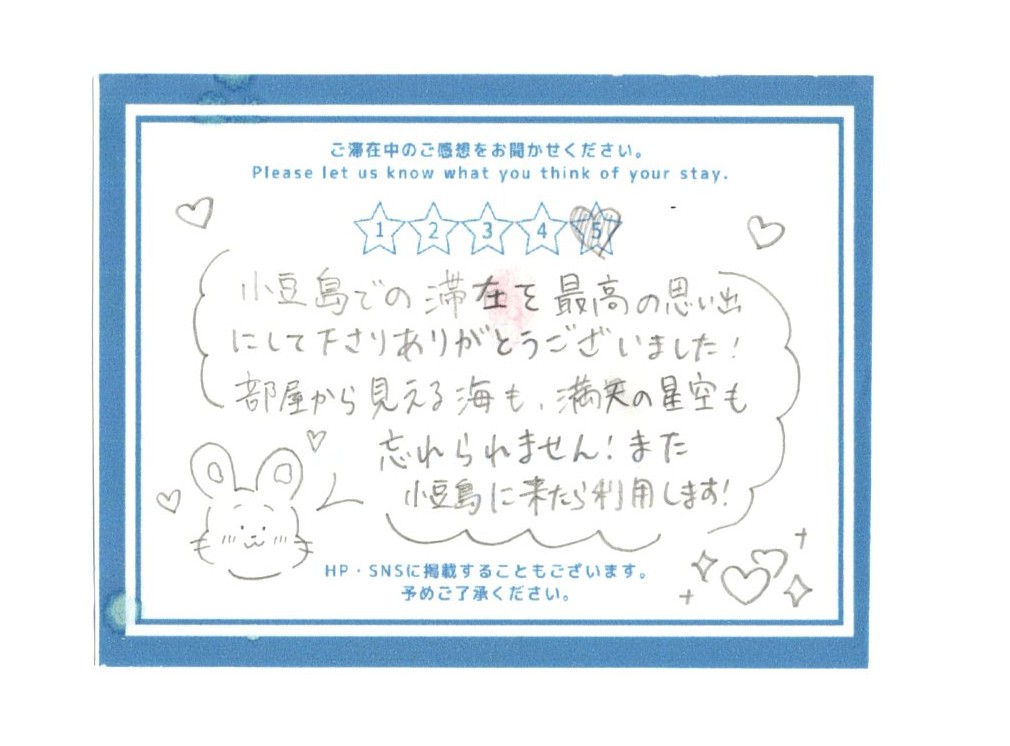 ご滞在中のご感想をお聞かせください。
Please let us know what you think of your stay.
1 2 3 4 5
小豆島での滞在を最高の思い出
にして下さりありがとうございました!
部屋から見える海も、満天の星空も
忘れられません!また
小豆島に来たら利用します!
HP・SNSに掲載することもございます。
予めご了承ください。